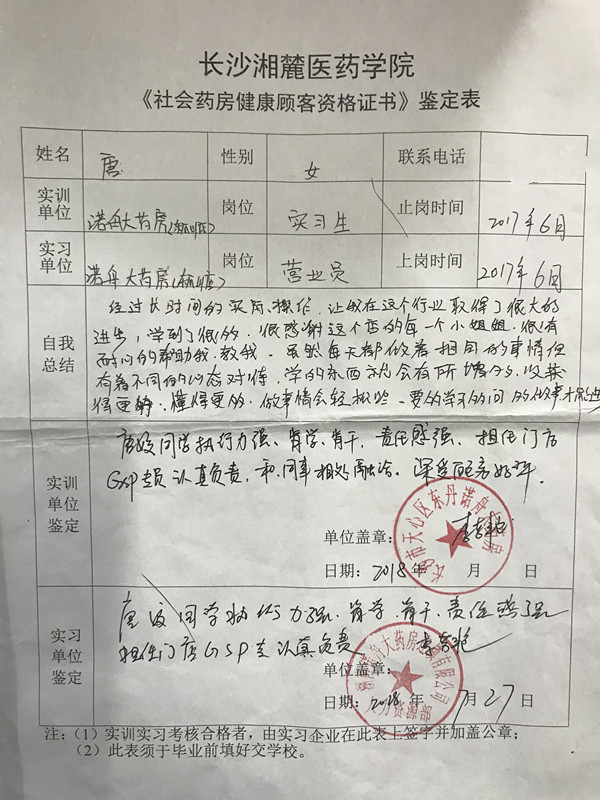 长沙湘麓医药学院
《社会药房健康顾客资格证书》鉴定表
姓名 唐 性别 女 联系电话
实训单位 诺舟大药房 岗位 实习生 止岗时间 2017年6月
实习单位 诺舟大药房 岗位 营业员 上岗时间 2017年6月
自我总结
经过长时间的实际操作，让我在这个行业取得了很大的
进步，学到了很多，很感谢这个店的每一个小姐姐，很有
耐心的帮助我，教我。虽然每天都做着相同的事情但
有着不同的心态对待，学的东西就会有所增多，收获
得更多，懂得更多，做事情会轻松些，要多学习多问
实训单位鉴定
同学执行力强、肯学、肯干，责任感强，担任门店
GSP专员认真负责，和同事相处融洽，深受好评。
单位盖章：
日期：2018年 月 日
实习单位鉴定
同学执行力强、肯学、肯干、责任感强
担任门店GSP专认真负责
单位盖章：
日期：2018年7月27日
人力资源部
注：（1）实训实习考核合格者，由实习企业在此表上签字并加盖公章；
（2）此表须于毕业前填好交学校。